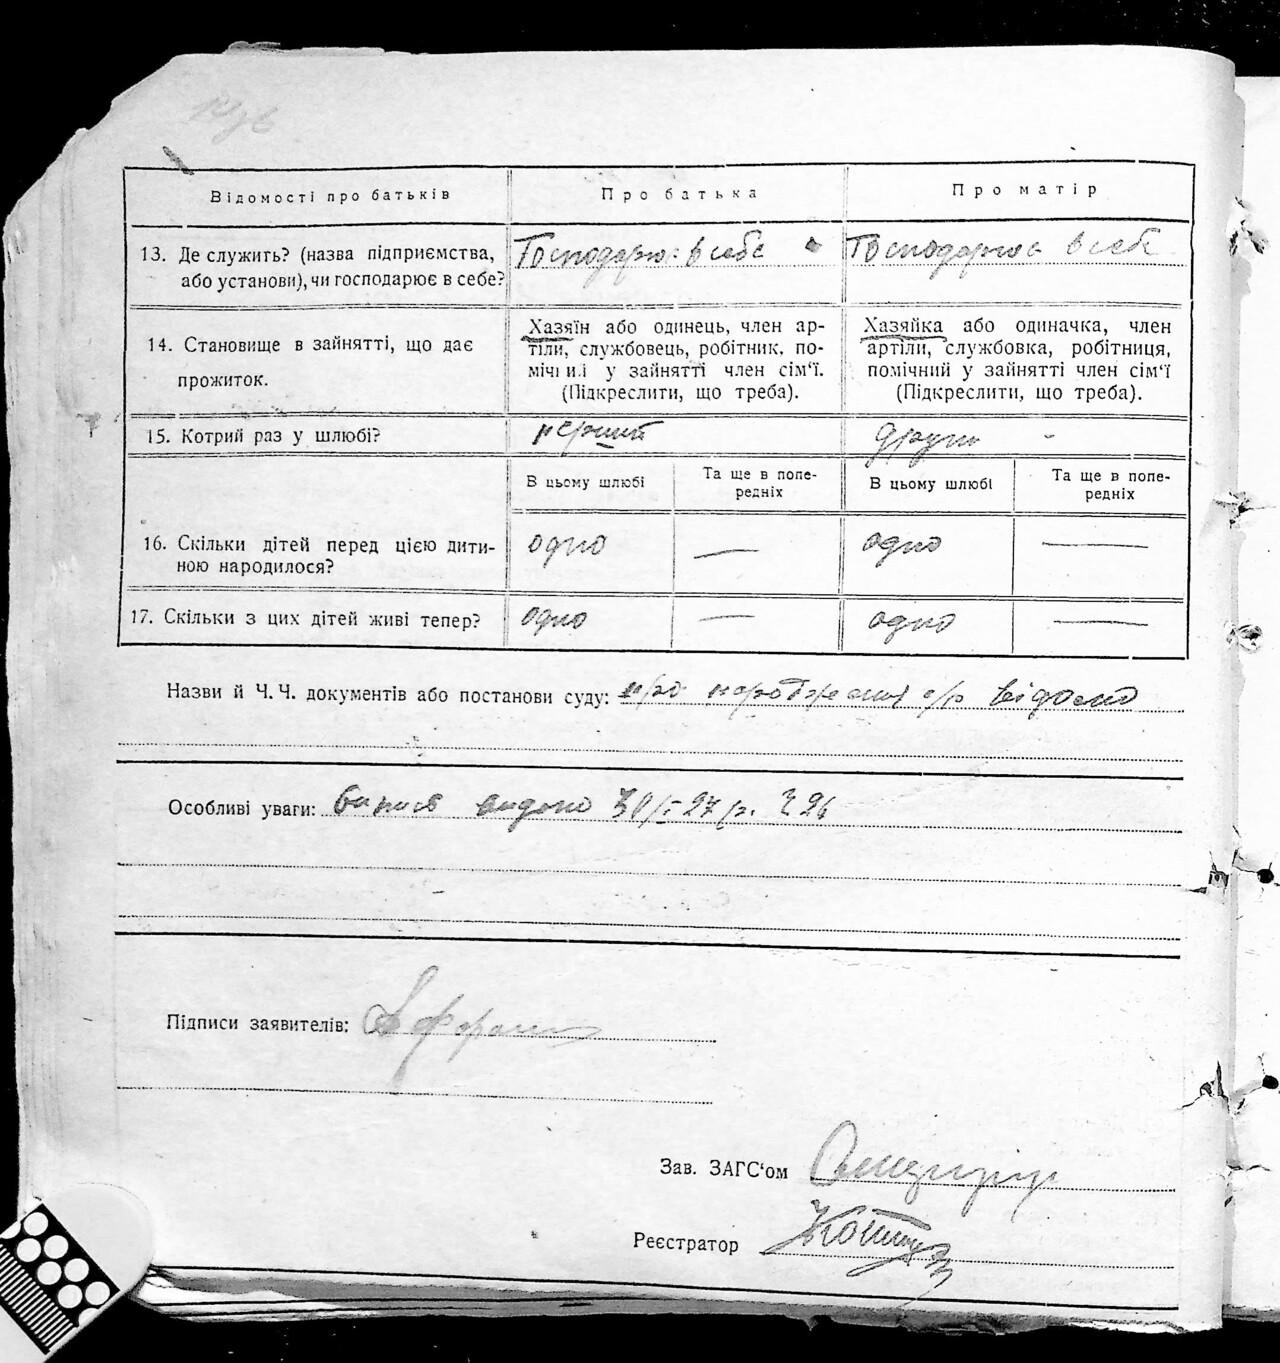 Відомості про батьків
Про батька
Про матір
13. Де служить? (назва підприємства,
або установи), чи господарює в себе?
Господарює в себе
Господарює в себе
14. Становище в зайнятті, що дає
прожиток.
Хазяїн або одинець, член ар-
тіли, службовець, робітник, по-
мічний у зайнятті член сім'ї.
(Підкреслити, що треба).
Хазяйка або одиначка, член
артіли, службовка, робітниця,
помічний у зайнятті член сім'ї
(Підкреслити, що треба).
15. Котрий раз у шлюбі?
перший
други
В цьому шлюбі
Та ще в попе-
редніх
В цьому шлюбі
Та ще в попе-
редніх
16. Скільки дітей перед цією дити-
ною народилося?
одно — одно —
17. Скільки з цих дітей живі тепер?
одно — одно —
Назви й Ч.Ч. документів або постанови суду: про народження с/р відомо
Особливі уваги: Випис видано 30/I-27 р. 226
Підписи заявителів:
Зав. ЗАГС'ом
Реєстратор